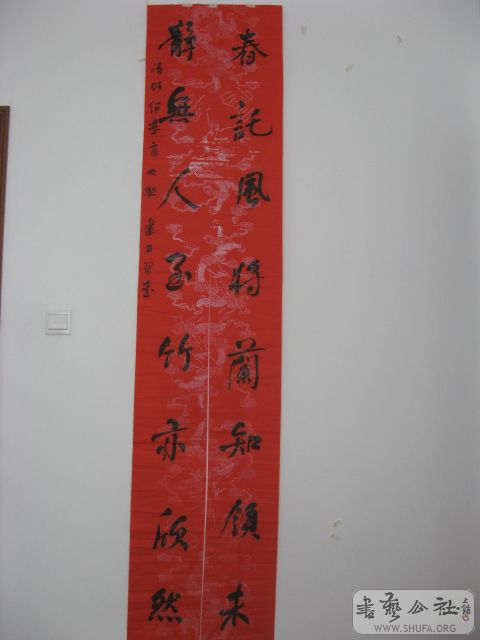 春託風将蘭知領未
静無人至竹亦欣然
書藝公社
WWW.SHUFA.ORG